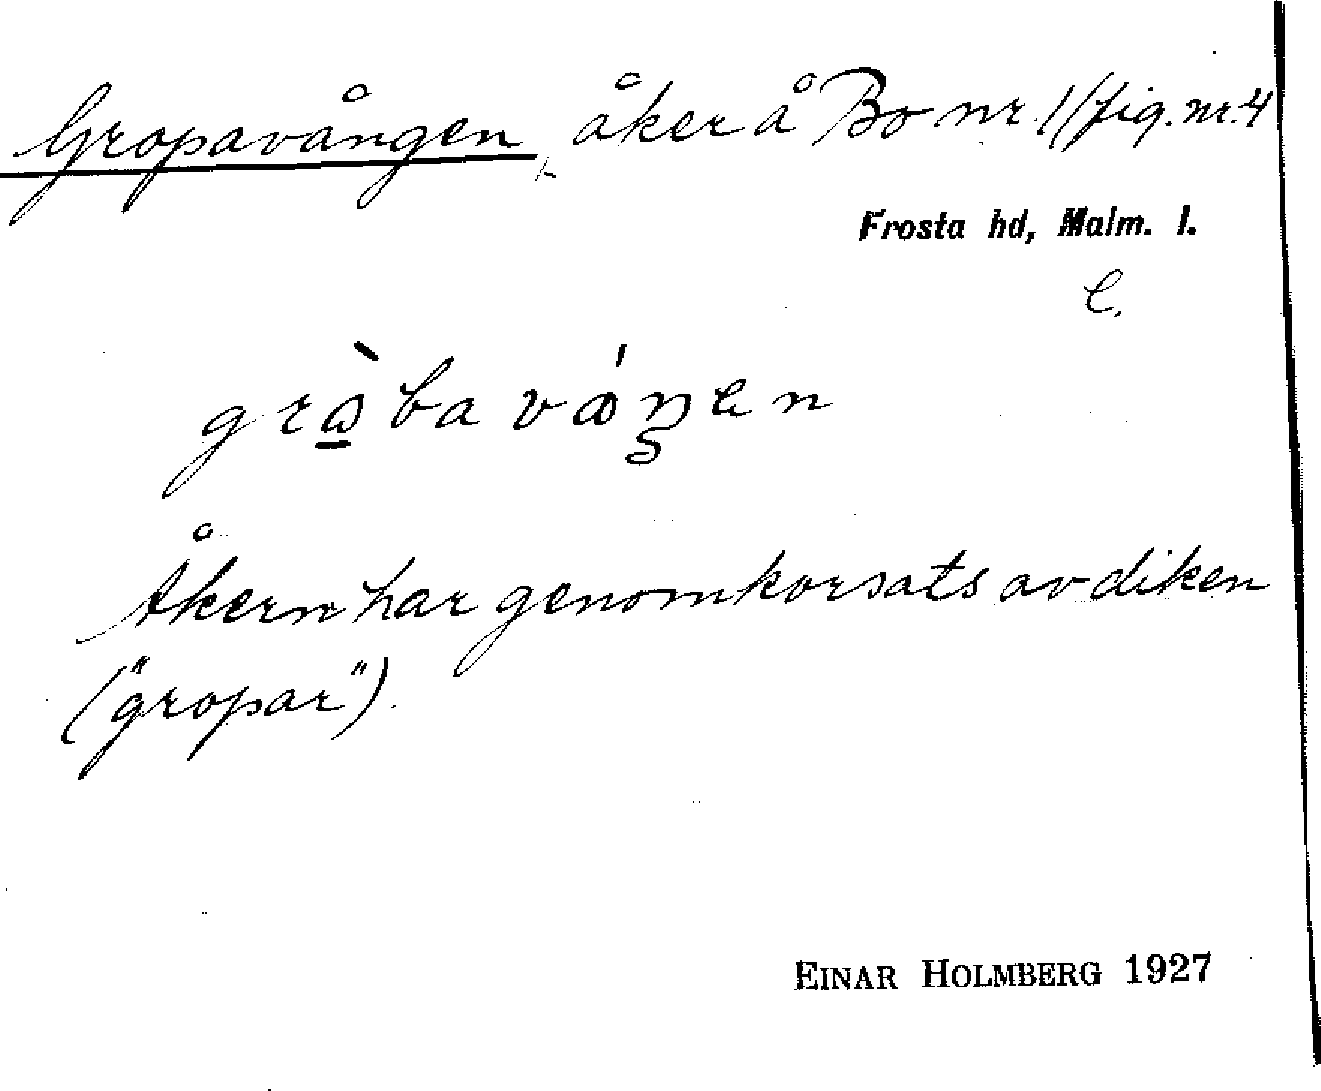 Gropavången, åker å Bo nr 1 (fig. nr. 4
Frosta hd, Malm. l.
C.
Åkern har genomkorsats av diken
("gropar").
EINAR HOLMBERG 1927